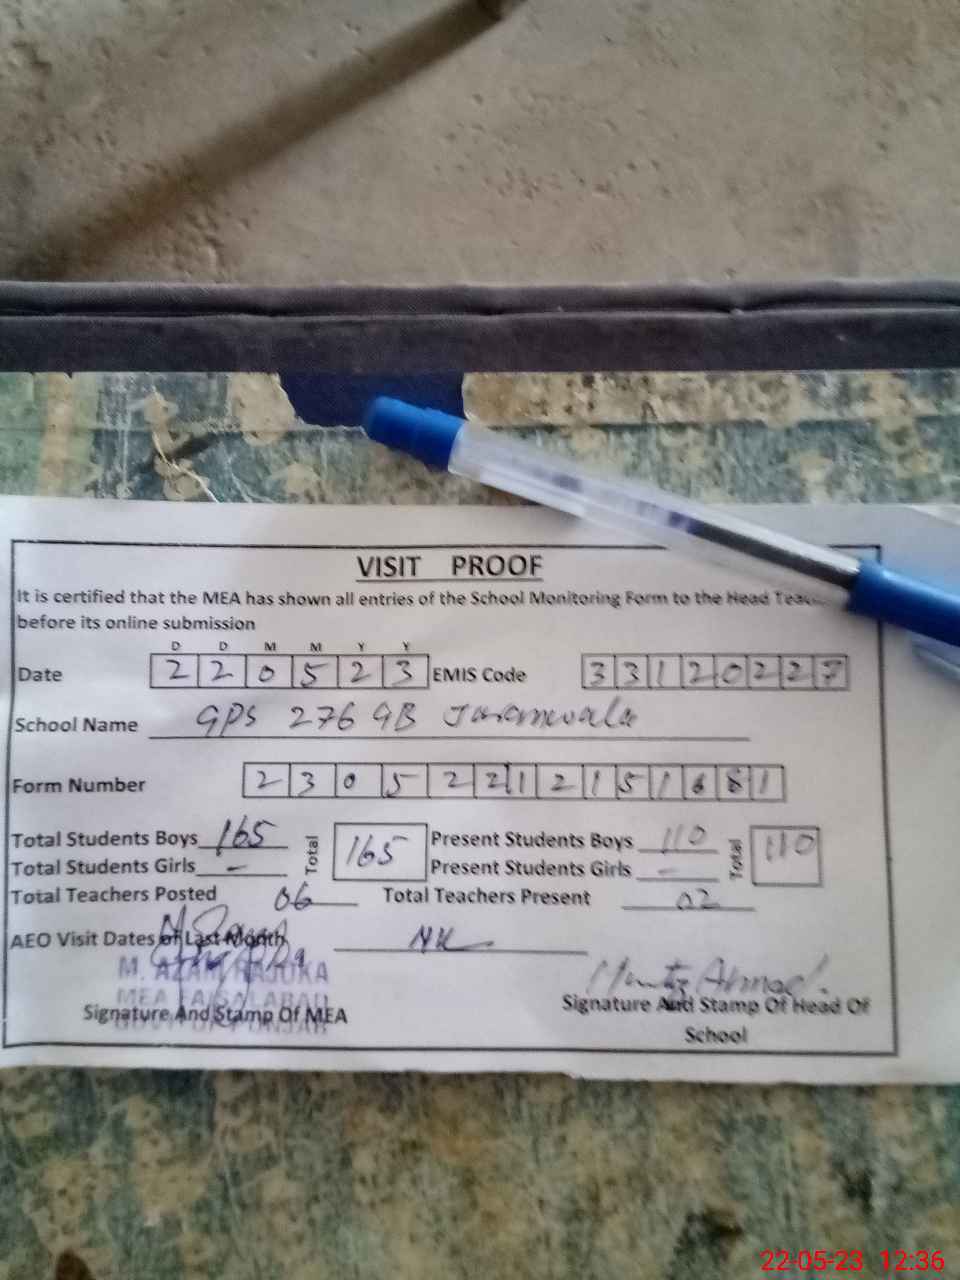 VISIT PROOF
It is certified that the MEA has shown all entries of the School Monitoring Form to the Head
before its online submission
D D M M Y Y
Date 2 2 0 5 2 3 EMIS Code 3 3 1 2 0 2 2 7
School Name GPS 276 GB Jaranwala
Form Number 2 3 0 5 2 2 1 2 1 5 1 6 8 1
Total Students Boys 165 Total 165 Present Students Boys 110 Total 110
Total Students Girls - Present Students Girls -
Total Teachers Posted 06 Total Teachers Present 02
AEO Visit Dates of Last Month
M. AZAM RAJOKA
MEA FAISALABAD
Signature And Stamp Of MEA
Ahmad
Signature And Stamp Of Head Of
School
22-05-23 12:36